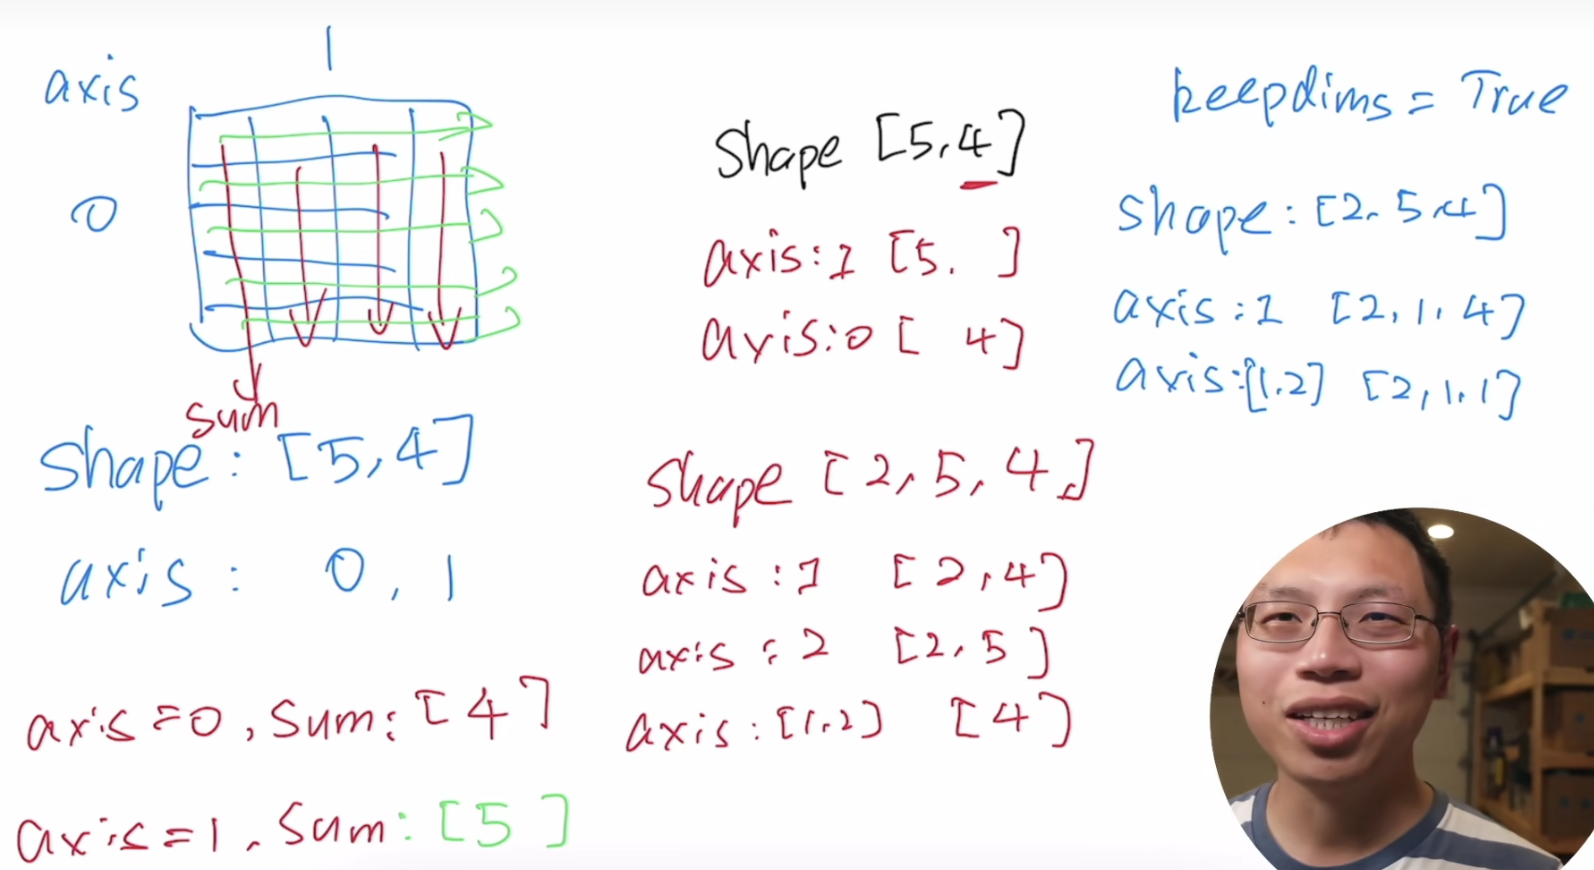 1
axis
0
sum
shape: [5,4]
axis: 0, 1
axis=0, sum: [4]
axis=1, sum: [5]
shape [5,4]
axis:1 [5. ]
axis:0 [ 4]
shape [2,5,4]
axis:1 [2,4]
axis:2 [2,5]
axis:[1,2] [4]
keepdims=True
shape:[2.5.4]
axis:1 [2,1,4]
axis:[1.2] [2,1,1]